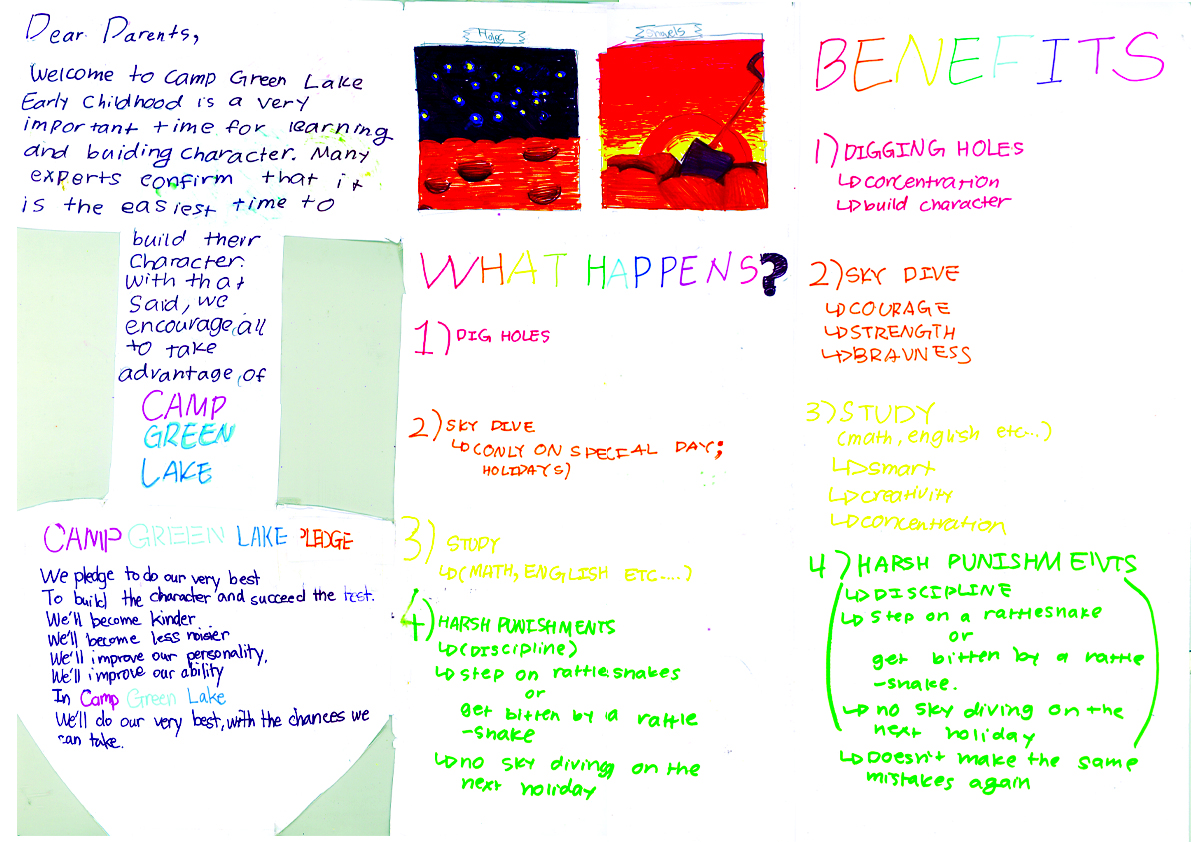 Dear Parents,
Welcome to Camp Green Lake
Early Childhood is a very
important time for learning
and buiding character. Many
experts confirm that it
is the easiest time to
build their
Character.
With that
Said, we
encourage all
to take
advantage of
CAMP
GREEN
LAKE
CAMP GREEN LAKE PLEDGE
We pledge to do our very best
To build the character and succeed the test.
We'll become kinder
We'll become less noisier
We'll improve our personality,
We'll improve our ability
In Camp Green Lake
We'll do our very best, with the chances we
can take.
Holes
Shovels
WHAT HAPPENS?
1) DIG HOLES
2) SKY DIVE
↳(ONLY ON SPECIAL DAY;
HOLIDAYS)
3) STUDY
↳(MATH, ENGLISH ETC....)
4) HARSH PUNISHMENTS
↳(DISCIPLINE)
↳step on rattlesnakes
or
get bitten by a rattle
-snake
↳no sky diving on the
next holiday
BENEFITS
1) DIGGING HOLES
↳concentration
↳build character
2) SKY DIVE
↳COURAGE
↳STRENGTH
↳BRAVNESS
3) STUDY
(math, english etc...)
↳smart
↳creativity
↳concentration
4) HARSH PUNISHMENTS
↳DISCIPLINE
↳step on a rattlesnake
or
get bitten by a rattle
-snake.
↳no sky diving on the
next holiday
↳Doesn't make the same
mistakes again